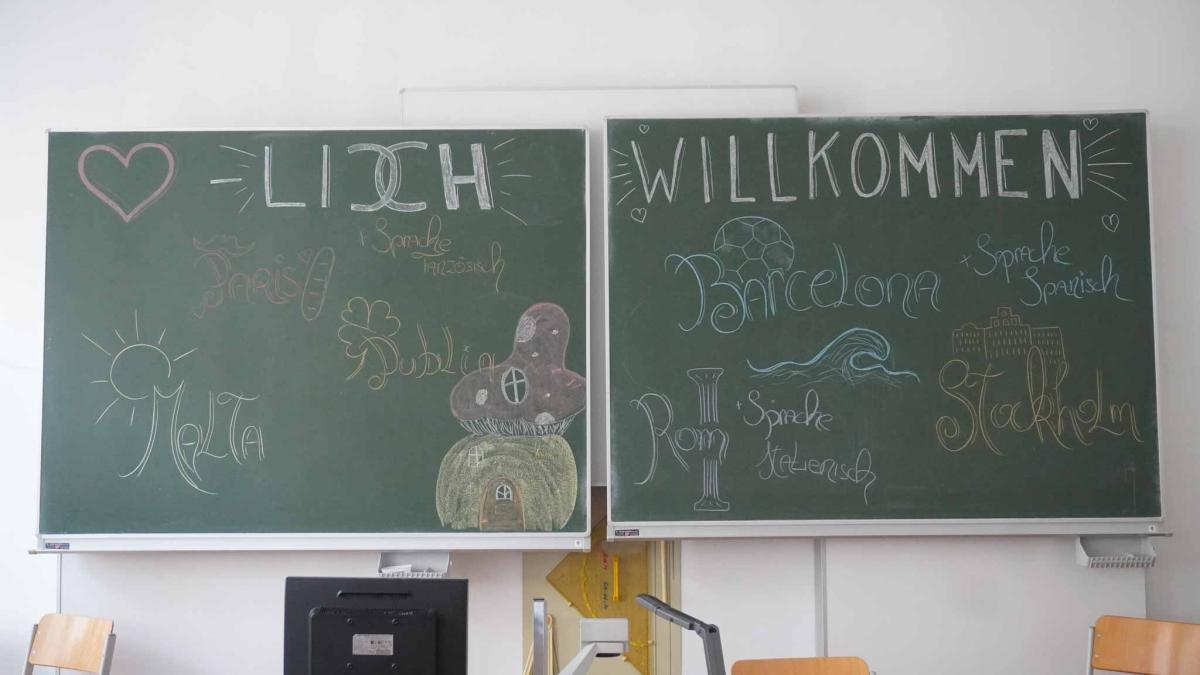 LICH
Paris
+ Sprache
Französisch
Dublin
MALTA
WILLKOMMEN
Barcelona
+ Sprache
Spanisch
Stockholm
Rom
+ Sprache
Italienisch